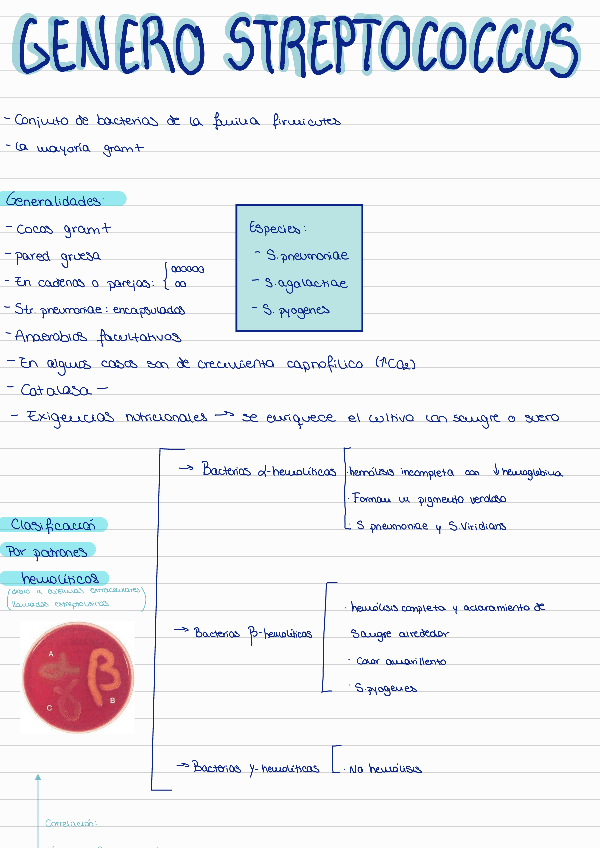 GENERO STREPTOCOCCUS
- Conjunto de bacterias de la familia firmicutes
- La mayoría gram+
Generalidades:
- Cocos gram+
- pared gruesa
- En cadenas o parejas:
- Str. pneumoniae: encapsulados
- Anaerobios facultativos
- En algunos casos son de crecimiento capnofílico (↑CO2)
- Catalasa -
- Exigencias nutricionales → se enriquece el cultivo con sangre o suero
Especies:
- S. pneumoniae
- S. agalactiae
- S. pyogenes
Clasificación
Por patrones
hemolíticos
(debido a enzimas extracelulares
llamadas estreptolisinas)
A
β
B
C
→ Bacterias α-hemolíticas
· hemólisis incompleta con ↓ hemoglobina
· Forman un pigmento verdoso
· S pneumoniae y S. Viridians
→ Bacterias β-hemolíticas
· hemólisis completa y aclaramiento de
sangre alrededor
· Color amarillento
· S. pyogenes
→ Bacterias γ-hemolíticas
· No hemólisis
Correlación: